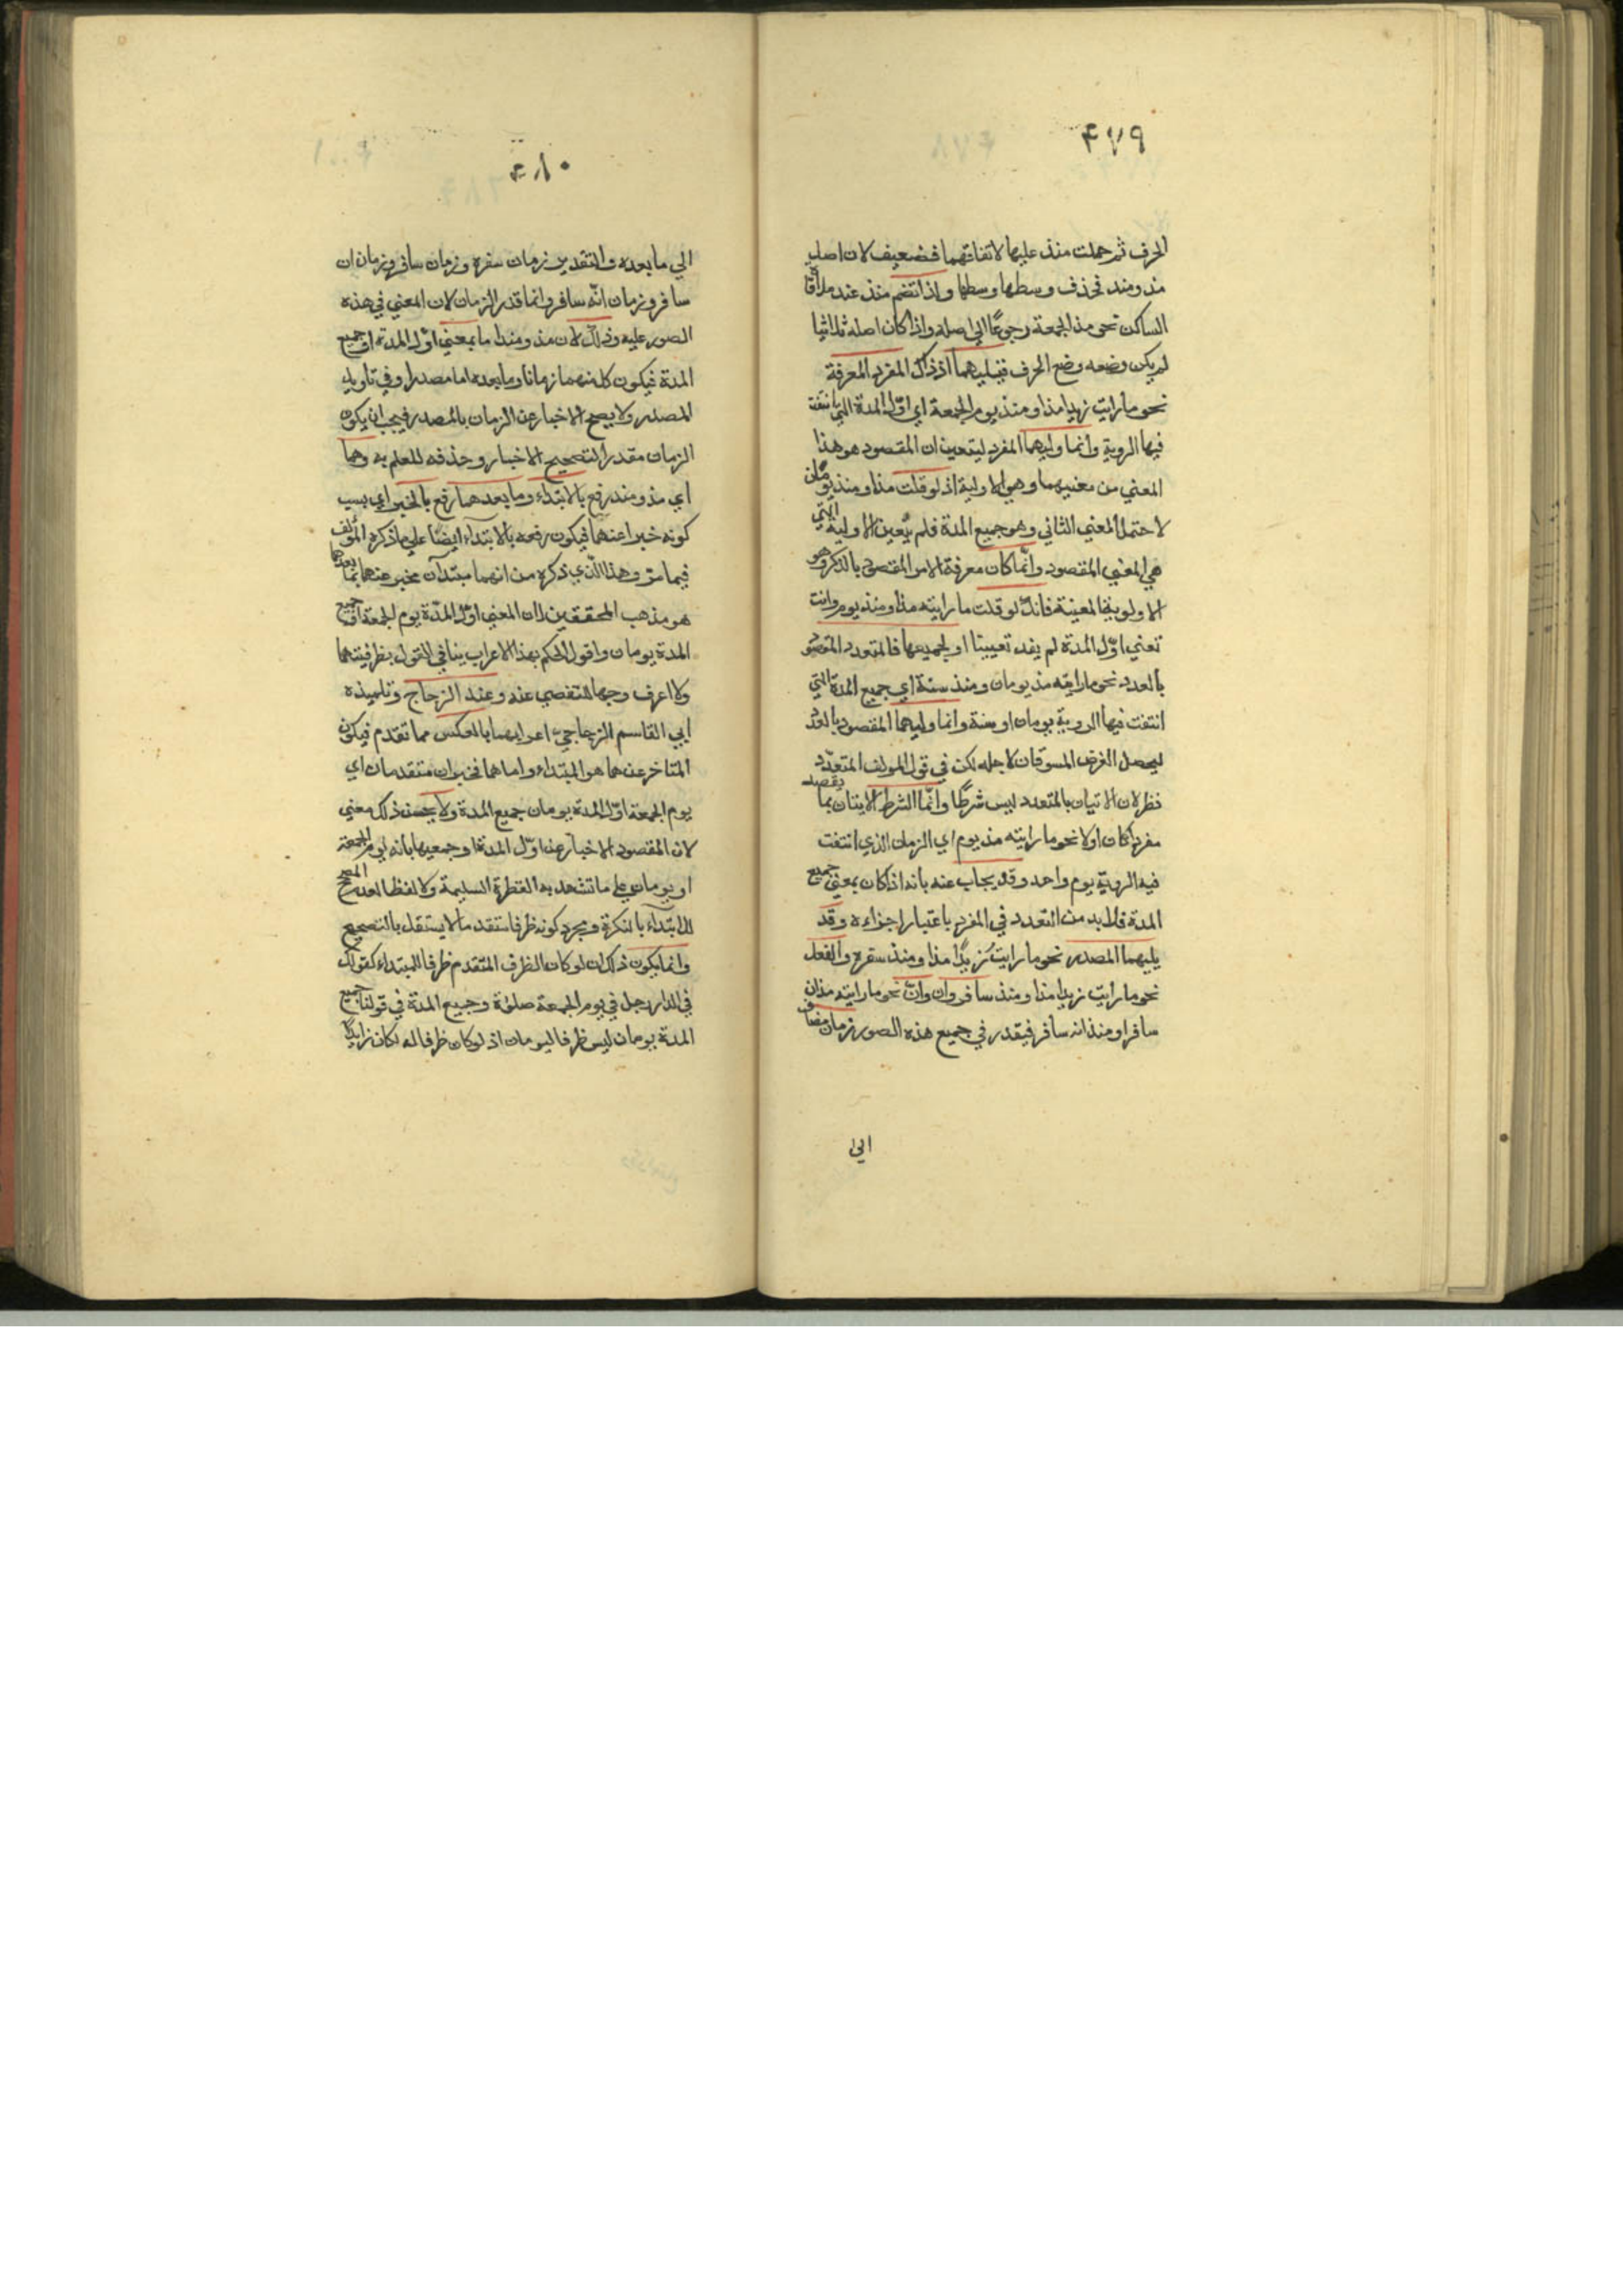 ٤٧٩
الحرف ثم حملت منذ عليها لاتفاقهما فضعيف لان اصل
مذ ومنذ فحذف وسطها وسطها واذا تنضم منذ عند ملاقا
الساكن نحو مذ الجمعة رجوعًا الى اصله واذا كان اصله ثلاثيا
لم يكن وضعه وضع الحرف فيليهما اذ ذاك المفرد المعرفة
نحو ما رايت زيدا مذ او منذ يوم الجمعة اي اوّل المدة التي انتفت
فيها الروية وانما وليهما المفرد ليتعين ان المقصود هو هذا
المعني من معنييهما وهي الاولية اذ لو قلت مذ او منذ يومان
لاحتمل المعني الثاني وهو جميع المدة فلم يتعين الاولية التي
هي المعني المقصود وانّما كان معرفة الامر المقصود بالذكر وهو
الاولوية المعينة فانك لو قلت ما رايته مذ او منذ يوم وانت
تعني اوّل المدة لم يفد تعيينا او لجميعها فالمتعدد المقصود
بالعدد نحو ما رايته مذ يومان ومنذ سنة اي جميع المدة التي
انتفت فيها الروية يومان او سنة وانما وليهما المقصود بالعدد
ليحصل الغرض المسوقان لاجله لكن في قول المولف المتعدّد
نظر لان الاتيان بالمتعدد ليس شرطًا وانّما الشرط الاتيان بما يقصد
مفردا كان او لا نحو ما رايته مذ يوم اي الزمان الذي انتفت
فيه الروية يوم واحد وقد يجاب عنه بانه اذا كان بمعني جميع
المدة فلا بد من التعدد في المفرد باعتبار اجزاءه وقد
يليهما المصدر نحو ما رايت زيدًا مذ او منذ سفره والفعل
نحو ما رايت زيدا مذ او منذ سافر وان وانّ نحو ما رايته مذ ان
سافر او منذ انه سافر فيقدر في جميع هذه الصور زمان مضاف
الى
٤٨٠
الي ما بعده والتقدير زمان سفره وزمان سافر وزمان ان
سافر وزمان انّه سافر وانما قدر الزمان لان المعني في هذه
الصور عليه وذلك لان مذ ومنذ اما بمعني اوّل المدة او جميع
المدة فيكون كل منهما زمانا وما بعده اما مصدرا وفي تاويل
المصدر ولا يصح الاخبار عن الزمان بالمصدر فيجب ان يكون
الزمان مقدرا لتصحيح الاخبار وحذفه للعلم به وهما
اي مذ ومنذ رفع بالابتداء وما بعدهما رفع بالخبر اي بسبب
كونه خبرا عنهما فيكون رفعه بالابتداء ايضًا علي ما ذكره المؤلف
فيما مر وهذا الّذي ذكره من انهما مبتدآن مخبر عنهما بما بعدهما
هو مذهب المحققين لان المعني اوّل المدّة يوم الجمعة او جميع
المدة يومان واقول الحكم بهذا الاعراب ينافي القول بظرفيتهما
ولا اعرف وجها للتفصي عنه وعند الزجاج وتلميذه
ابي القاسم الزجاجي اعرابهما بالعكس مما تقدم فيكون
المتاخر عنهما هو المبتداء واما هما فخبران متقدمان اي
يوم الجمعة اوّل المدة يومان جميع المدة ولا يحسن ذلك معني
لان المقصود الاخبار عن اوّل المدة او جميعها بانه يوم الجمعة
او يومان علي ما تشهد به الفطرة السليمة ولا لفظا لعدم المصحح
للابتداء بالنكرة وبمجرد كونه ظرفا متقدما لا يستقل بالتصحيح
وانما يكون ذلك ان لو كان الظرف المتقدم ظرفا للمبتداء كقولك
في الدار رجل في يوم الجمعة صلوة وجميع المدة في قولنا جميع
المدة يومان ليس ظرفا ليومان اذ لو كان ظرفا له لكان زايدًا